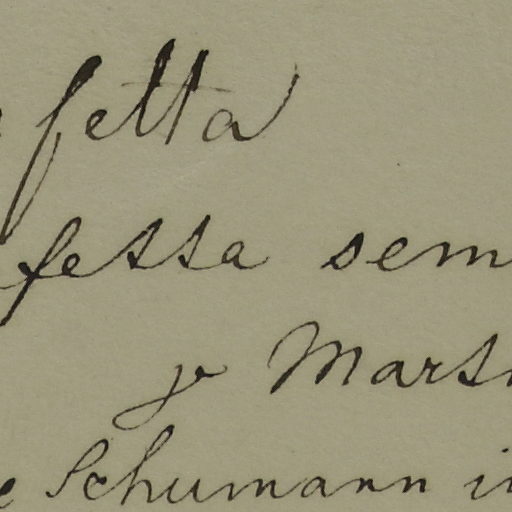 fetta
fessa sem
Mars
Schumann i